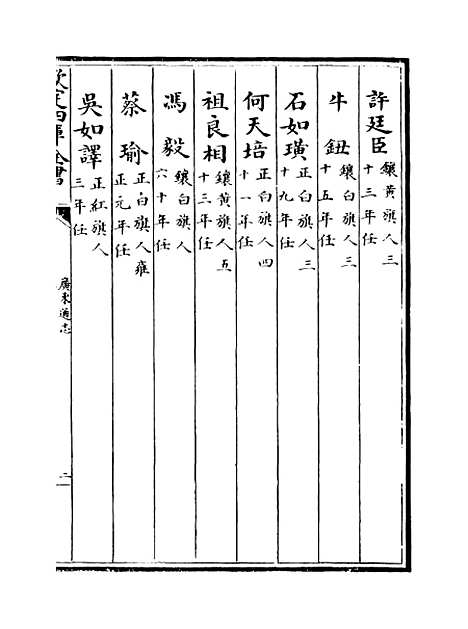 許廷臣 鑲黃旗人三十三年任
牛鈕 鑲白旗人三十五年任
石如璜 正白旗人三十九年任
何天培 正白旗人四十一年任
祖良相 鑲黃旗人五十三年任
馮毅 鑲白旗人六十年任
蔡瑜 正白旗人雍正元年任
吳如譯 正紅旗人三年任
欽定四庫全書
廣東通志
二